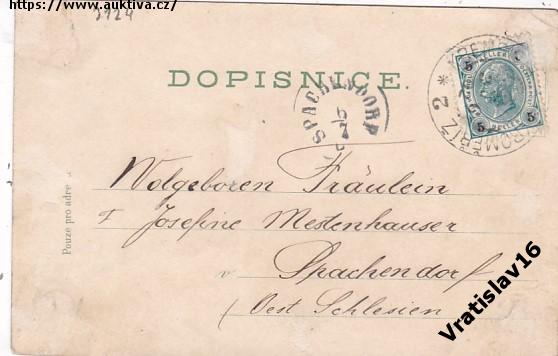 https://www.auktiva.cz/
5124
DOPISNICE.
SPACHENDORF
KREMSIER
KROMĚŘÍŽ 2
5 5
5 HELLER 5
Wolgeboren Fräulein
Josefine Mestenhauser
Spachendorf
Oest Schlesien
Pouze pro adre
Vratislav16